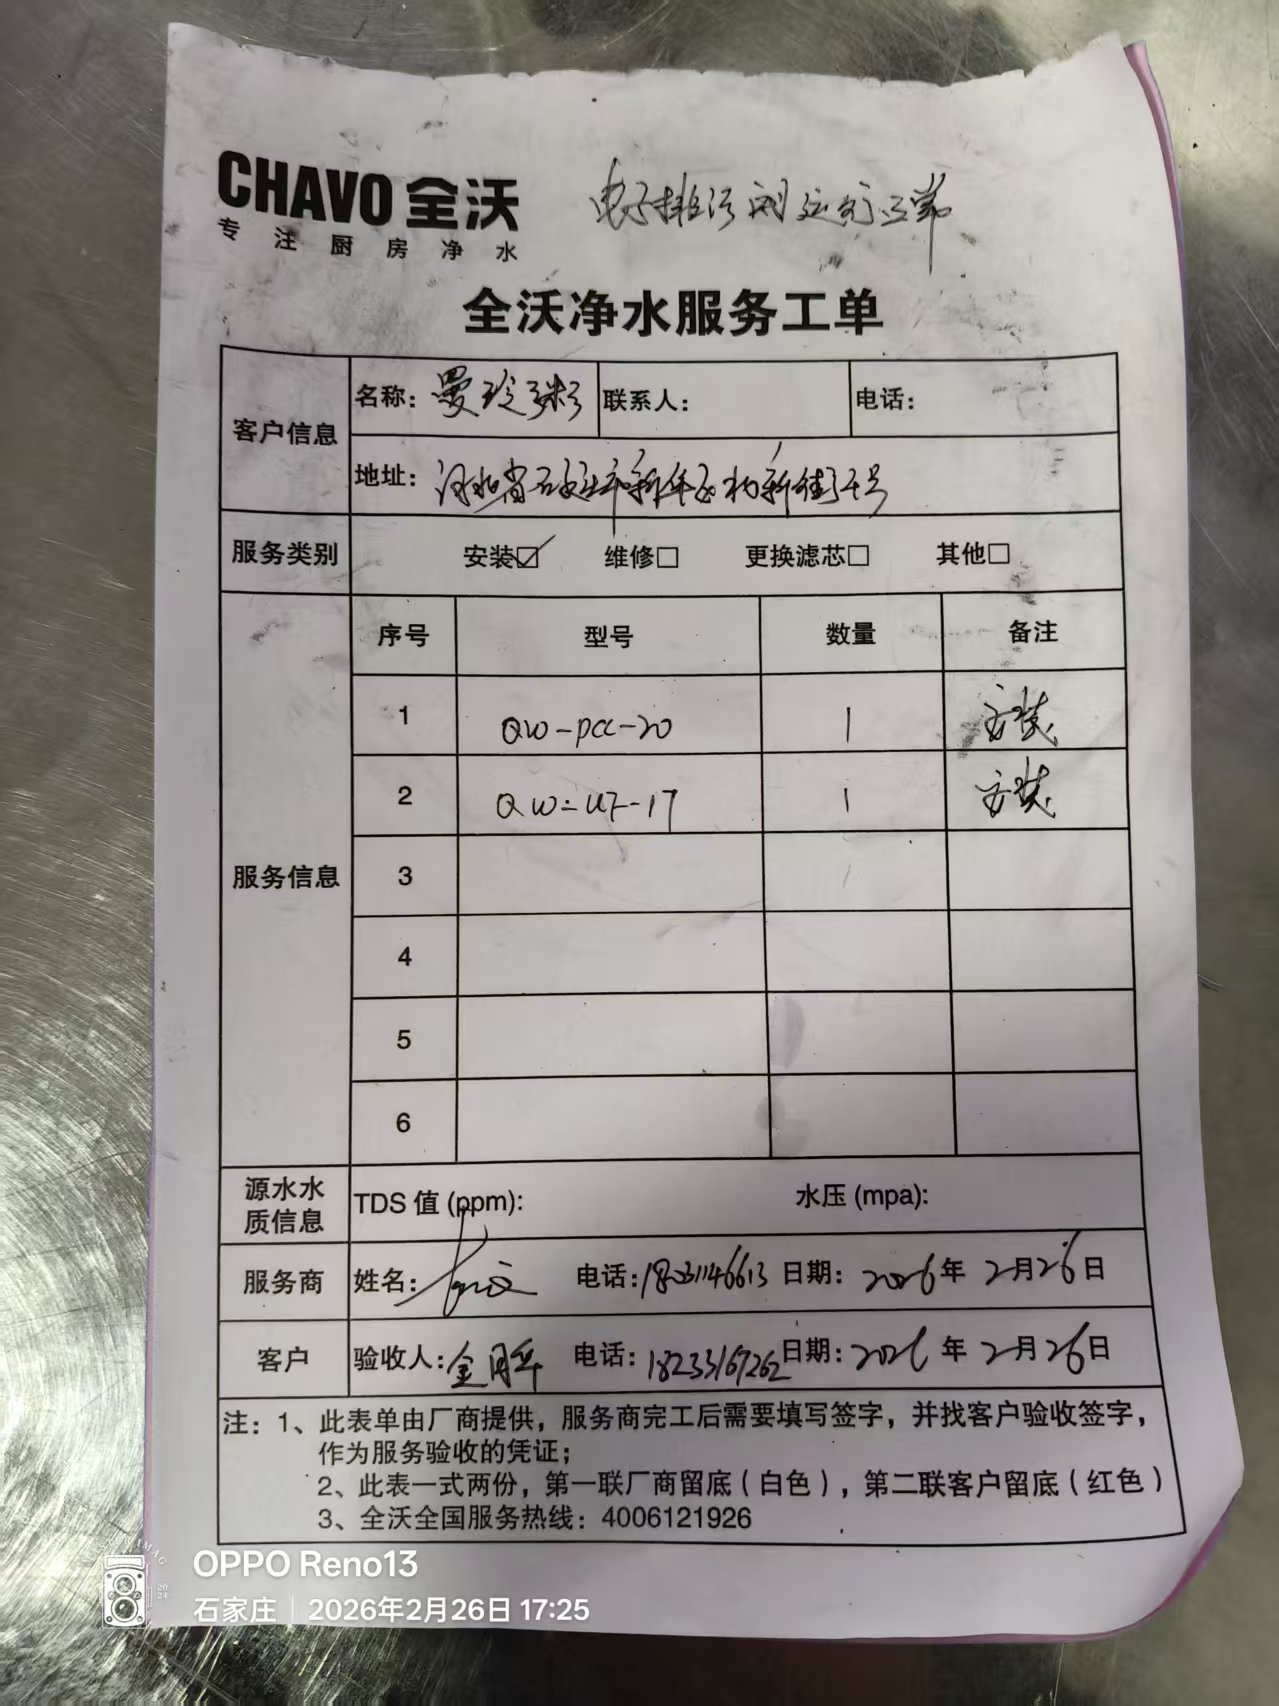 CHAVO 全沃
专注厨房净水
电子排污阀运行正常
全沃净水服务工单
客户信息 名称：曼玲粥 联系人： 电话：
地址：河北省石家庄市新华区柏新街5号
服务类别 安装☑ 维修□ 更换滤芯□ 其他□
服务信息 序号 型号 数量 备注
1 QW-PCC-20 1 安装
2 QW-UF-17 1 安装
3
4
5
6
源水水质信息 TDS 值 (ppm): 水压 (mpa):
服务商 姓名： 电话：18031146613 日期：2026年2月26日
客户 验收人： 电话：18233167262 日期：2026年2月26日
注：1、此表单由厂商提供，服务商完工后需要填写签字，并找客户验收签字，
作为服务验收的凭证；
2、此表一式两份，第一联厂商留底（白色），第二联客户留底（红色）
3、全沃全国服务热线：4006121926
OPPO Reno13
石家庄 | 2026年2月26日 17:25